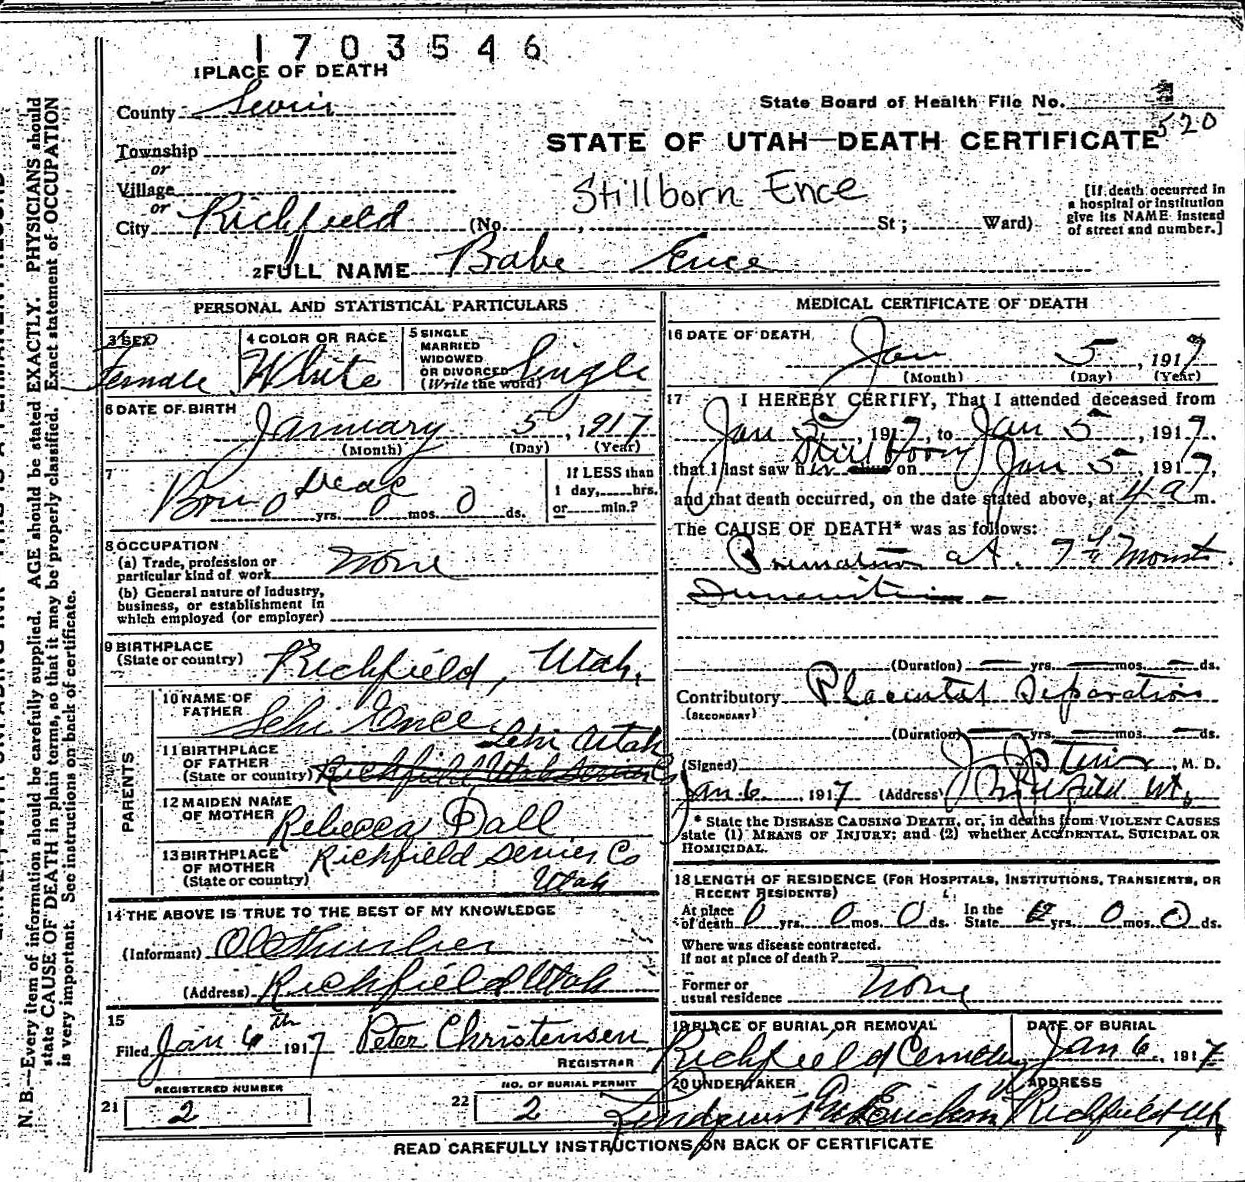 1703546
1 PLACE OF DEATH
County Sevier
State Board of Health File No.
520
STATE OF UTAH—DEATH CERTIFICATE
Township
or
Village
or
City Richfield (No. , St ; Ward)
Stillborn Ence
[If death occurred in
a hospital or institution
give its NAME instead
of street and number.]
2 FULL NAME Babe Ence
PERSONAL AND STATISTICAL PARTICULARS
3 SEX
Female
4 COLOR OR RACE
White
5 SINGLE
MARRIED
WIDOWED
OR DIVORCED
(Write the word)
Single
6 DATE OF BIRTH
January 5, 1917
(Month) (Day) (Year)
7
Born Dead
0 yrs. 0 mos. 0 ds.
If LESS than
1 day, hrs.
or min.?
8 OCCUPATION
(a) Trade, profession or
particular kind of work None
(b) General nature of industry,
business, or establishment in
which employed (or employer)
9 BIRTHPLACE
(State or country) Richfield, Utah.
PARENTS
10 NAME OF
FATHER Lehi Ence
11 BIRTHPLACE
OF FATHER
(State or country)
Lehi Utah
Richfield Utah Sevier Co
12 MAIDEN NAME
OF MOTHER Rebecca Dall
13 BIRTHPLACE
OF MOTHER
(State or country)
Richfield Sevier Co
Utah
14 THE ABOVE IS TRUE TO THE BEST OF MY KNOWLEDGE
(Informant)
(Address) Richfield Utah
15
Filed Jan 6th 1917 Peter Christensen
REGISTRAR
REGISTERED NUMBER
21 2
NO. OF BURIAL PERMIT
22 2
MEDICAL CERTIFICATE OF DEATH
16 DATE OF DEATH
Jan 5, 1917
(Month) (Day) (Year)
17 I HEREBY CERTIFY, That I attended deceased from
Jan 5, 1917, to Jan 5, 1917,
Still born
that I last saw her alive on Jan 5, 1917,
and that death occurred, on the date stated above, at 4 a m.
The CAUSE OF DEATH* was as follows:
Premature at 7th Month
(Duration) yrs. mos. ds.
Contributory Placental Separation
(SECONDARY)
(Duration) yrs. mos. ds.
(Signed) , M. D.
Jan 6, 1917 (Address) Richfield Ut.
* State the DISEASE CAUSING DEATH, or, in deaths from VIOLENT CAUSES
state (1) MEANS OF INJURY; and (2) whether ACCIDENTAL, SUICIDAL OR
HOMICIDAL.
18 LENGTH OF RESIDENCE (FOR HOSPITALS, INSTITUTIONS, TRANSIENTS, OR
RECENT RESIDENTS)
At place of death 0 yrs. 0 mos. 0 ds. In the State yrs. 0 mos. 0 ds.
Where was disease contracted.
if not at place of death?
Former or
usual residence None
19 PLACE OF BURIAL OR REMOVAL
Richfield Cemetery
DATE OF BURIAL
Jan 6, 1917
20 UNDERTAKER
ADDRESS
Richfield Ut
READ CAREFULLY INSTRUCTIONS ON BACK OF CERTIFICATE
N. B.—Every item of information should be carefully supplied. AGE should be stated EXACTLY. PHYSICIANS should
state CAUSE OF DEATH in plain terms, so that it may be properly classified. Exact statement of OCCUPATION
is very important. See instructions on back of certificate.